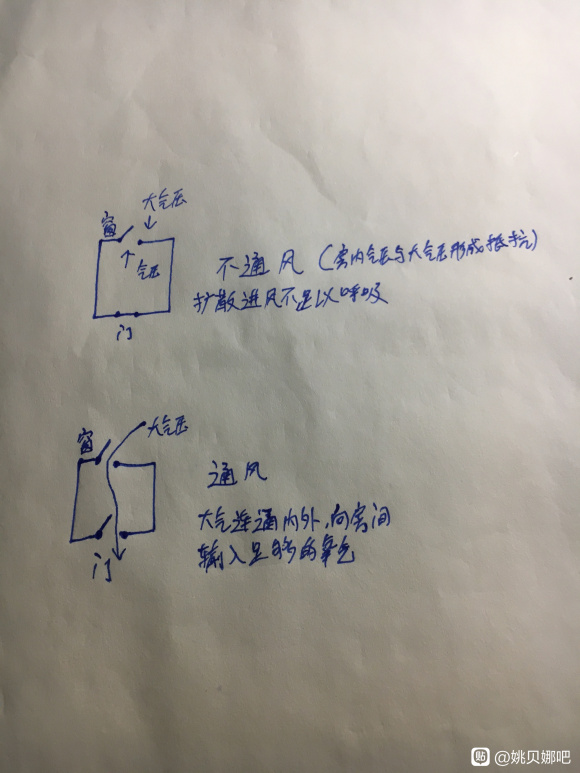 大气压
窗
气压
门
不通风（房内气压与大气压形成抵抗）
扩散进风不足以呼吸
大气压
窗
门
通风
大气连通内外，向房间
输入足够的氧气
贴 @姚贝娜吧